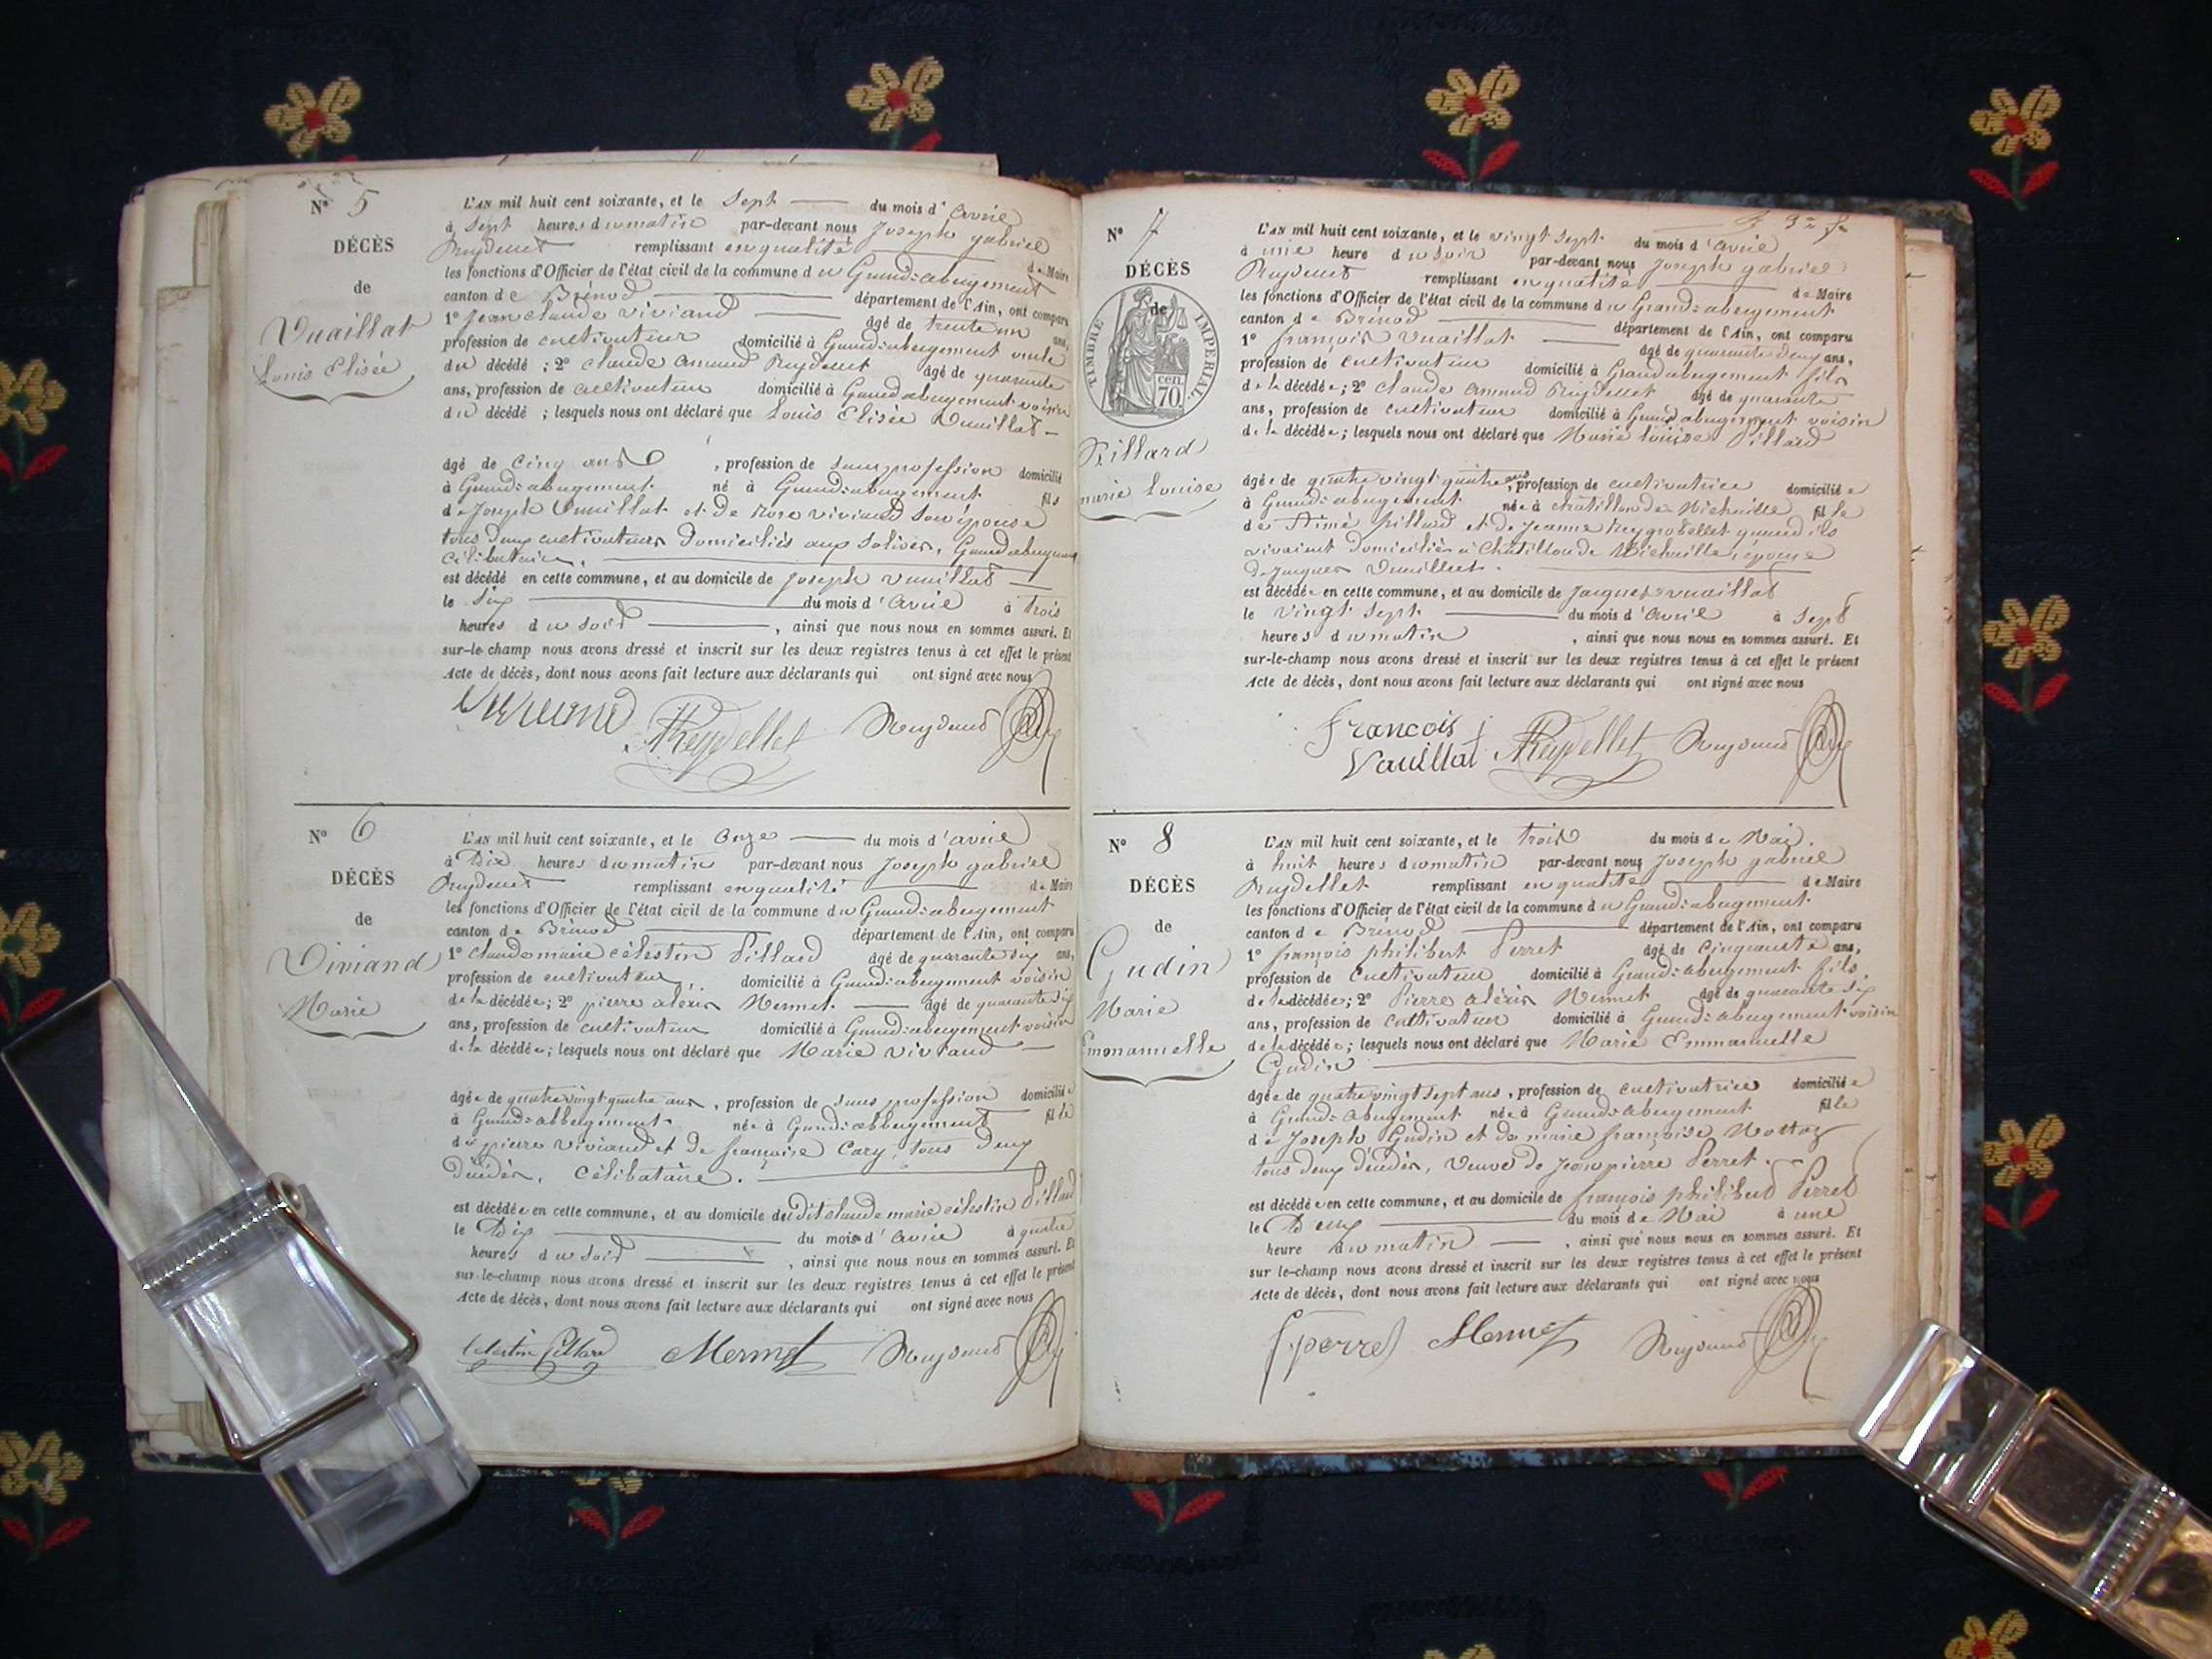 N° 5
DÉCÈS
de
Vuaillat
Louis Elisée
L'AN mil huit cent soixante, et le Sept du mois d'avril
à Sept heures du matin par-devant nous Joseph gabriel
Reydellet remplissant en qualité de Maire
les fonctions d'Officier de l'état civil de la commune du Grand=abergement
canton de Brénod département de l'Ain, ont comparu
1° Jean claude Viviand âgé de trente un ans,
profession de cultivateur domicilié à Grand=abergement oncle
du décédé ; 2° claude Armand Reydellet âgé de quarante
ans, profession de cultivateur domicilié à Grand abergement voisin
du décédé ; lesquels nous ont déclaré que Louis Elisée Vuaillat
âgé de cinq ans , profession de sans profession domicilié
à Grand=abergement né à Grand=abergement fils
de Joseph Vuaillat et de Rose viviand son épouse
tous deux cultivateurs domiciliés aux Solives, Grand abergement
célibataire.
est décédé en cette commune, et au domicile de Joseph vuaillat
le six du mois d'avril à trois
heures du soir , ainsi que nous nous en sommes assuré. Et
sur-le-champ nous avons dressé et inscrit sur les deux registres tenus à cet effet le présent
Acte de décès, dont nous avons fait lecture aux déclarants qui ont signé avec nous
Viviand AReydellet Reydellet
N° 6
DÉCÈS
de
Viviand
Marie
L'AN mil huit cent soixante, et le onze du mois d'avril
à Dix heures du matin par-devant nous Joseph gabriel
Reydellet remplissant en qualité de Maire
les fonctions d'Officier de l'état civil de la commune du Grand=abergement
canton de Brénod département de l'Ain, ont comparu
1° claude marie célestin Pillard âgé de quarante six ans,
profession de cultivateur domicilié à Grand=abergement voisin
de la décédée ; 2° pierre alexis Mermet âgé de quarante six
ans, profession de cultivateur domicilié à Grand=abergement voisin
de la décédée ; lesquels nous ont déclaré que Marie viviand
âgée de quatre vingt quatre ans , profession de sans profession domiciliée
à Grand=abbergement née à Grand=abbergement fille
de pierre viviand et de françoise Cary, tous deux
décédés, célibataire.
est décédée en cette commune, et au domicile dudit claude marie célestin Pillard
le Dix du mois d'avril à quatre
heures du soir , ainsi que nous nous en sommes assuré. Et
sur-le-champ nous avons dressé et inscrit sur les deux registres tenus à cet effet le présent
Acte de décès, dont nous avons fait lecture aux déclarants qui ont signé avec nous
Celestin Pillard Mermet Reydellet
N° 7
DÉCÈS
de
TIMBRE IMPERIAL
70 cen.
Pillard
marie Louise
L'AN mil huit cent soixante, et le vingt sept du mois d'avril
à une heure du soir par-devant nous Joseph gabriel
Reydellet remplissant en qualité de Maire
les fonctions d'Officier de l'état civil de la commune du Grand=abergement
canton de Brénod département de l'Ain, ont comparu
1° françois Vuaillat âgé de quarante deux ans,
profession de cultivateur domicilié à Grand abergement fils
de la décédée ; 2° claude Armand Reydellet âgé de quarante
ans, profession de cultivateur domicilié à Grand abergement voisin
de la décédée ; lesquels nous ont déclaré que Marie louise Pillard
âgée de quatre vingt quatre ans, profession de cultivatrice domiciliée
à Grand=abergement née à châtillon de Michaille fille
de Aimé pillard et de Jeanne Neyrobellet quand ils
vivaient domiciliés à Châtillon de Michaille, épouse
de Jacques Vuaillat.
est décédée en cette commune, et au domicile de Jacques vuaillat
le vingt sept du mois d'avril à Sept
heures du matin , ainsi que nous nous en sommes assuré. Et
sur-le-champ nous avons dressé et inscrit sur les deux registres tenus à cet effet le présent
Acte de décès, dont nous avons fait lecture aux déclarants qui ont signé avec nous
francois Vauillat AReydellet Reydellet
N° 8
DÉCÈS
de
Gudin
Marie
Emmanuelle
L'AN mil huit cent soixante, et le trois du mois de Mai.
à huit heures du matin par-devant nous Joseph gabriel
Reydellet remplissant en qualité de Maire
les fonctions d'Officier de l'état civil de la commune du Grand=abergement
canton de Brénod département de l'Ain, ont comparu
1° françois philibert Perret âgé de cinquante ans,
profession de cultivateur domicilié à Grand=abergement fils
de la décédée ; 2° Pierre alexis Mermet âgé de quarante six
ans, profession de cultivateur domicilié à Grand=abergement voisin
de la décédée ; lesquels nous ont déclaré que Marie Emmanuelle
Gudin
âgée de quatre vingt sept ans , profession de cultivatrice domiciliée
à Grand=abergement née à Grand=abergement fille
de Joseph Gudin et de marie françoise
tous deux décédés, veuve de Jean pierre Perret.
est décédée en cette commune, et au domicile de françois philibert Perret
le Deux du mois de Mai à une
heure du matin , ainsi que nous nous en sommes assuré. Et
sur le-champ nous avons dressé et inscrit sur les deux registres tenus à cet effet le présent
Acte de décès, dont nous avons fait lecture aux déclarants qui ont signé avec nous
fperret Mermet Reydellet